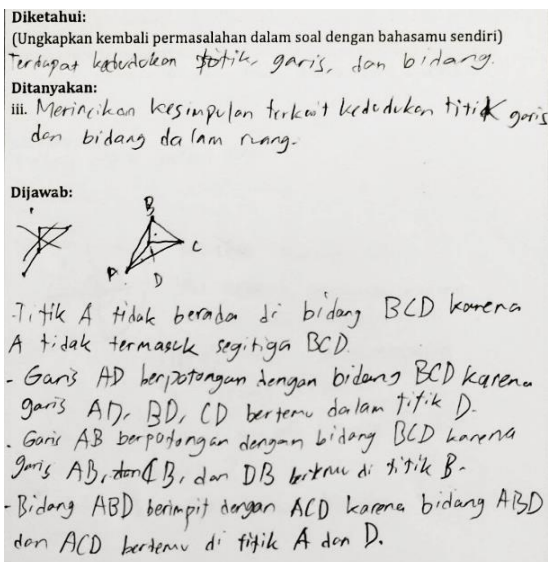 Diketahui:
(Ungkapkan kembali permasalahan dalam soal dengan bahasamu sendiri)
Terdapat kedudukan titik, garis, dan bidang.
Ditanyakan:
iii. Merincikan kesimpulan terkait kedudukan titik garis
dan bidang dalam ruang.
Dijawab:
B
C
A
D
-Titik A tidak berada di bidang BCD karena
A tidak termasuk segitiga BCD.
- Garis AD berpotongan dengan bidang BCD karena
garis AD, BD, CD bertemu dalam titik D.
. Garis AB berpotongan dengan bidang BCD karena
garis AB, CB, dan DB bertemu di titik B.
-Bidang ABD berimpit dengan ACD karena bidang ABD
dan ACD bertemu di titik A dan D.